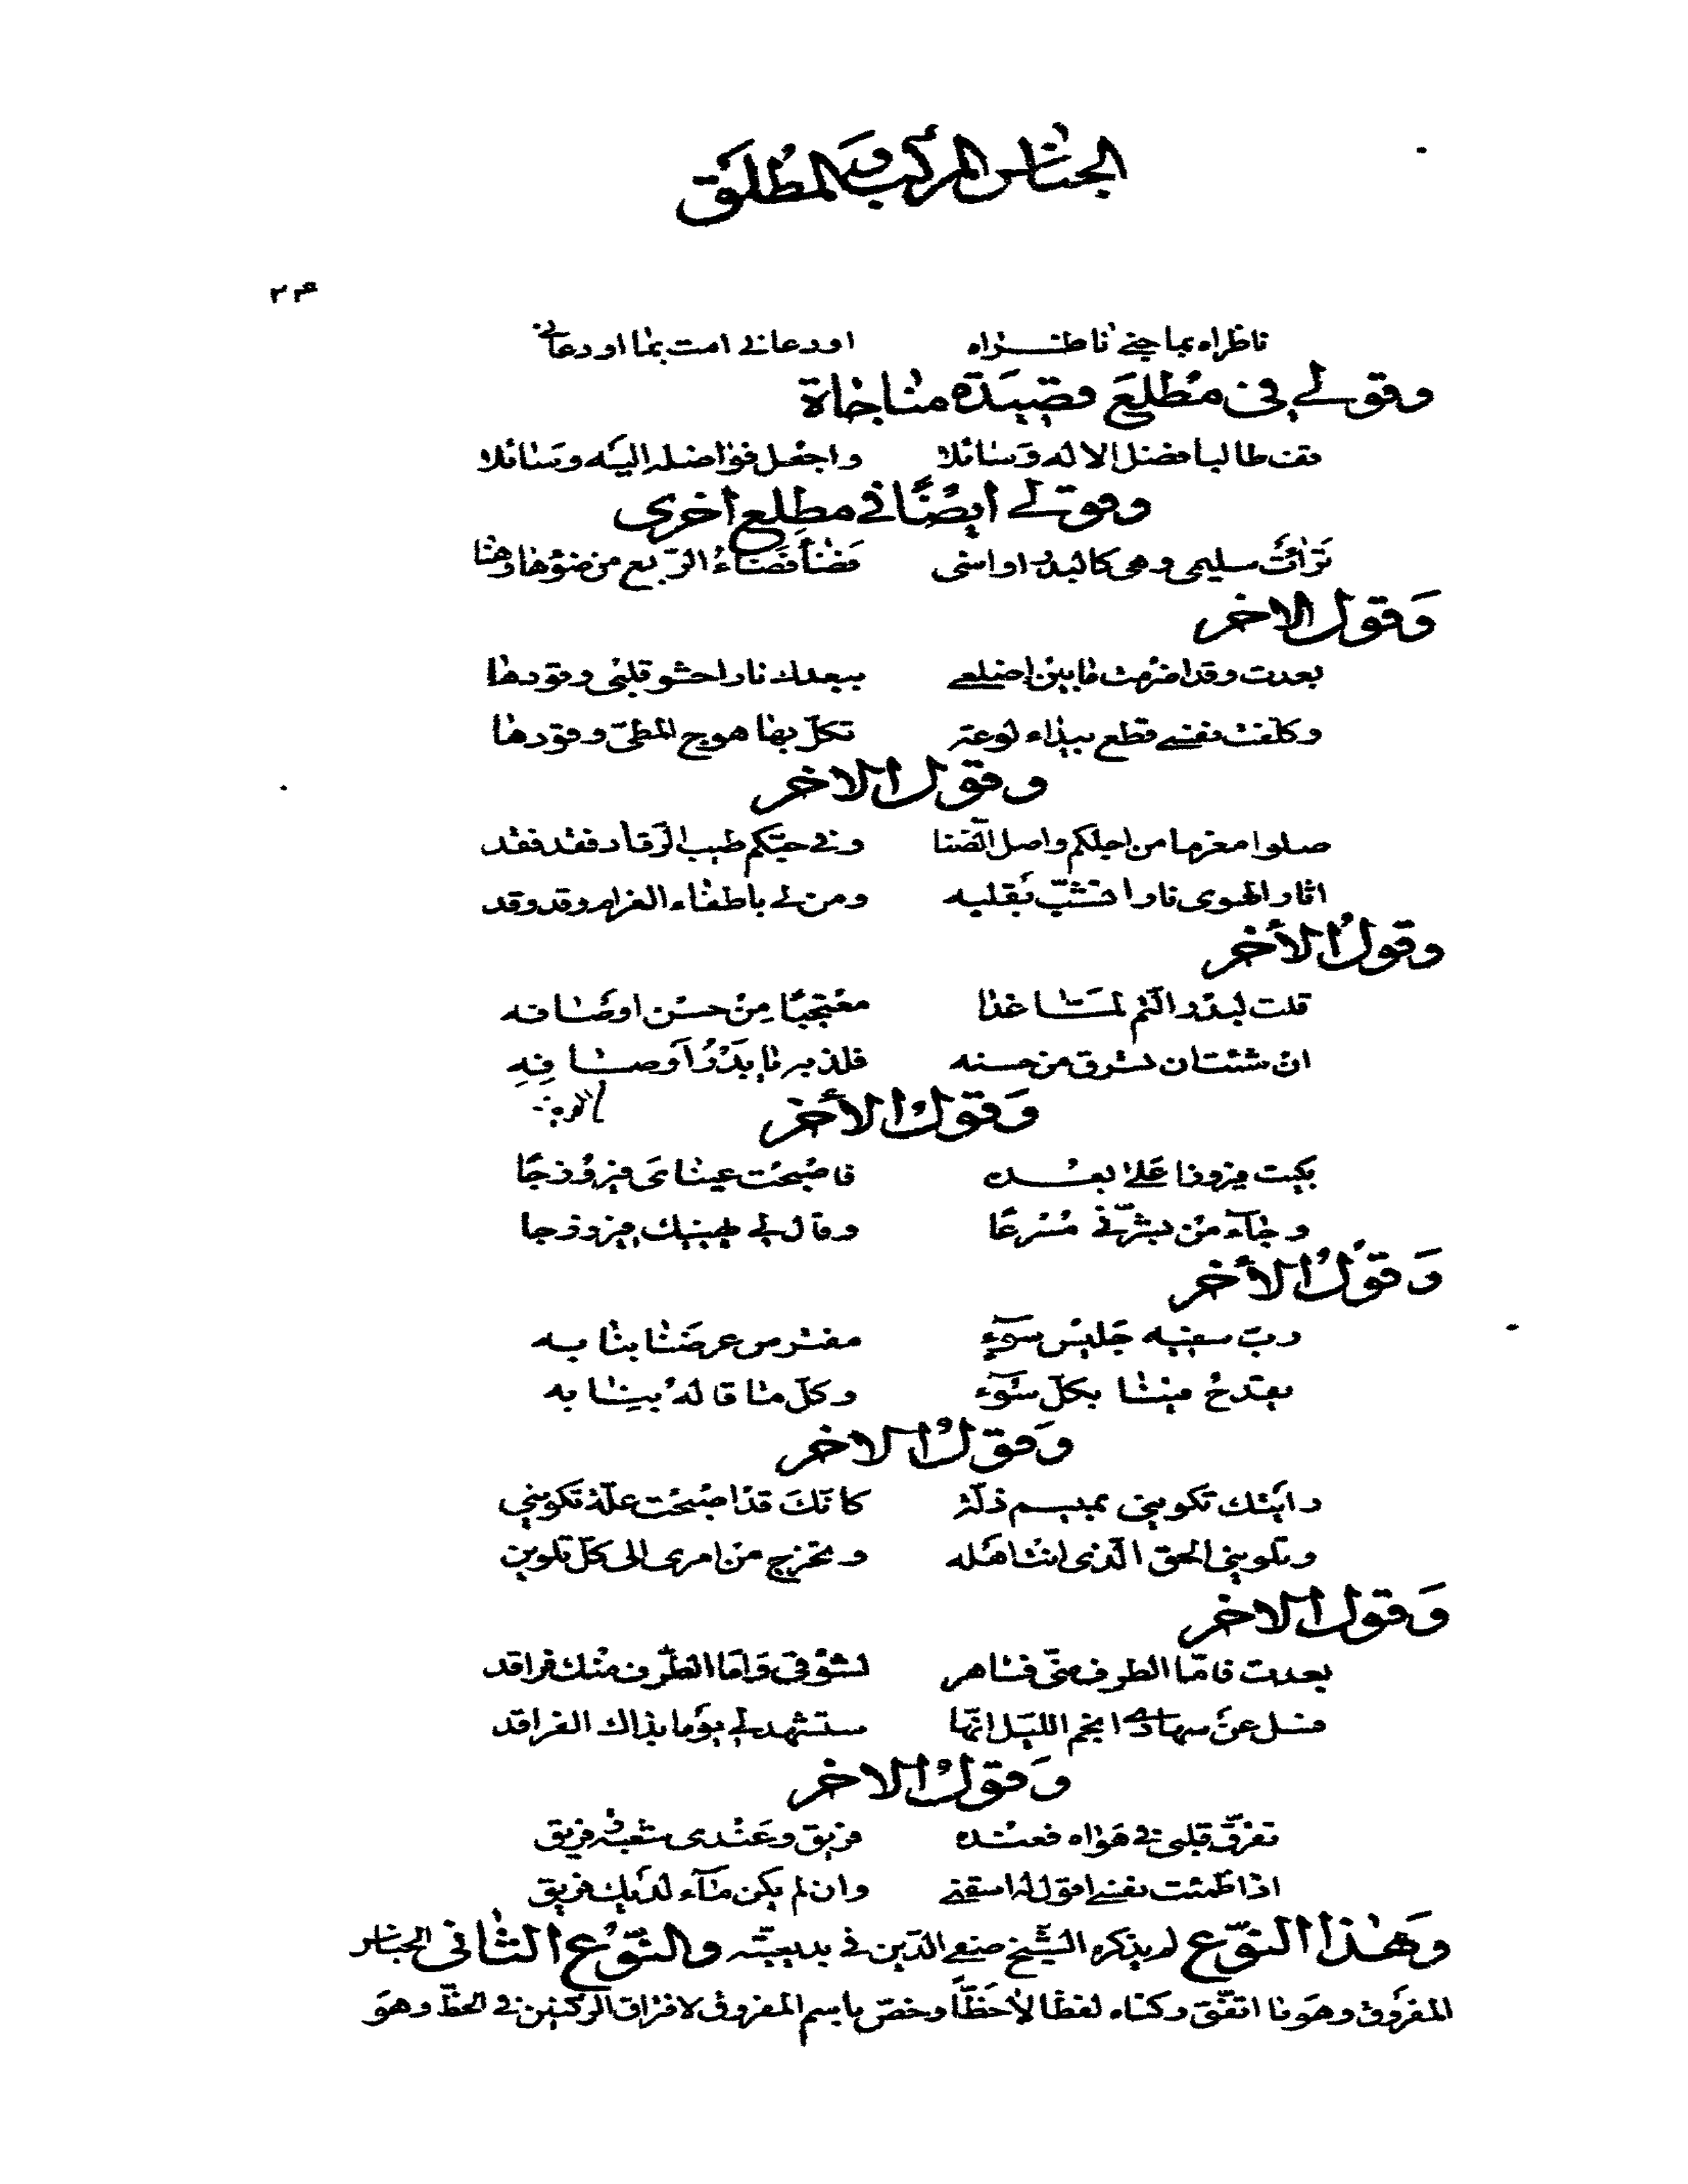 الجناس المركب والمطلق
٢٤
ناظراه بما جنى ناظراه اودعاني امت بما اودعاني
وقولي في مطلع قصيدة مناجاة
قف طالبا فضل الاله وسائلا واجعل فواضله اليه وسائلا
وقولي ايضًا في مطلع اخرى
تراءت سليمى وهي كالبدر او اسنى فضاء فضاء الربع من ضوئها وهنا
وقول الاخر
بعدت وقد اضرمت ما بين اضلعي ببعدك نارا حشو قلبي وقودها
وكلفت نفسي قطع بيداء لوعة تكلّ بها هوج المطيّ وقودها
وقول الاخر
صلوا مغرما من اجلكم واصل الضنا وفي حبّكم طيب الرقاد فقد فقد
اثار الهوى نارا تشبّ بقلبه ومن لي باطفاء الغرام وقد وقد
وقول الأخر
قلت لبدر التم لمّا غدا معتجبًا من حسن اوصافه
ان شئت ان تشرق من حسنه فلذ به يا بدر اوصافه
وقول الأخر
بكيت فيروزا على بعده فاصبحت عيناي فيروزجا
وجاء من بشّرني مسرعًا وقال لي يهنيك فيروزجا
وقول الأخر
ربّ سفيه جليس سوء مفترس عرضنا بنابه
يقدح فينا بكلّ سوء وكلّ ما قاله بينا به
وقول الاخر
رايتك تكويني بميسم ذلّة كانّك قد اصبحت علّة تكويني
وتلويني الحق الّذي انت اهله وتخرج من امري الى كلّ تلوين
وقول الاخر
بعدت فامّا الطرف منّي فساهر لشوقي وامّا الطرف منك فراقد
فسل عن سهادي انجم الليل انّها ستشهد لي يوما بذاك الفراقد
وقول الاخر
تفرّق قلبي في هواه فعنده فريق وعندي شعبة وفريق
اذا ظمئت نفسي اقول له اسقني وان لم يكن ماء لديك فريق
وهذا النّوع لم يذكره الشّيخ صفي الدّين في بديعيّته والنّوع الثاني الجناس
المفروق وهو ما اتفق ركناه لفظا لا خطّا وخصّ باسم المفروق لافتراق الركنين في الخطّ وهو